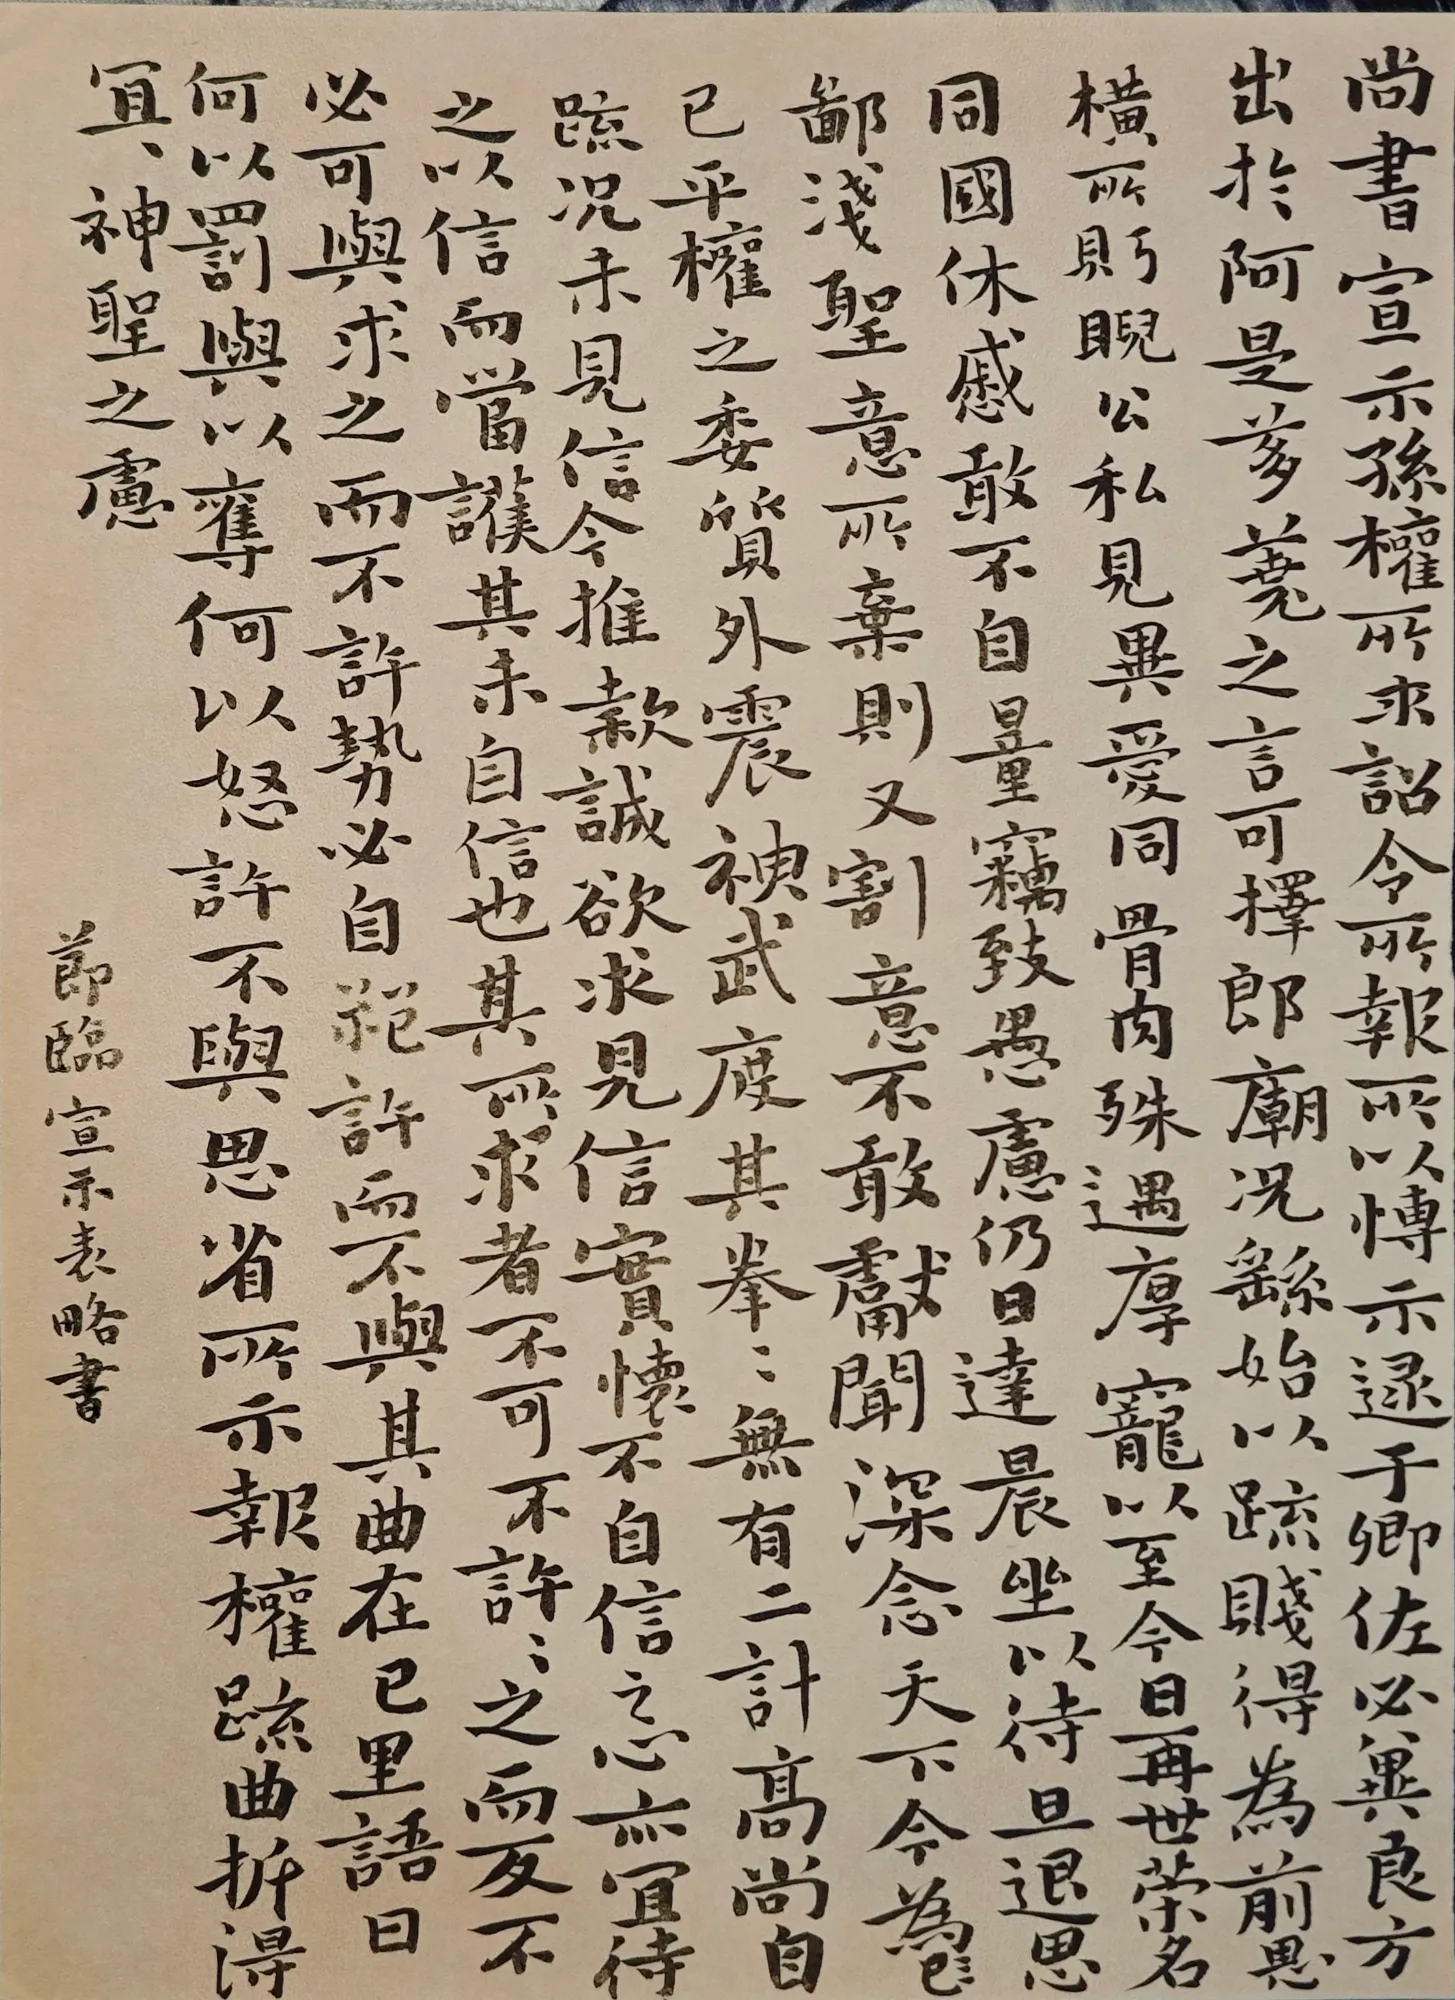 尚書宣示孫權所求詔令所報所以博示逮于卿佐必冀良方
出於阿是芻蕘之言可擇郎廟況繇始以疏賤得為前恩
橫所盼睨公私見異愛同骨肉殊遇厚寵以至今日再世榮名
同國休慼敢不自量竊致愚慮仍日達晨坐以待旦退思
鄙淺聖意所棄則又割意不敢獻聞深念天下今為已
已平權之委質外震神武度其拳〻無有二計高尚自
疏況未見信今推款誠欲求見信實懷不自信之心亦宜待
之以信而當護其未自信也其所求者不可不許〻之而反不
必可與求之而不許勢必自絕許而不與其曲在己里語曰
何以罰與以奪何以怒許不與思省所示報權疏曲折得
宜〻神聖之慮
節臨宣示表略書